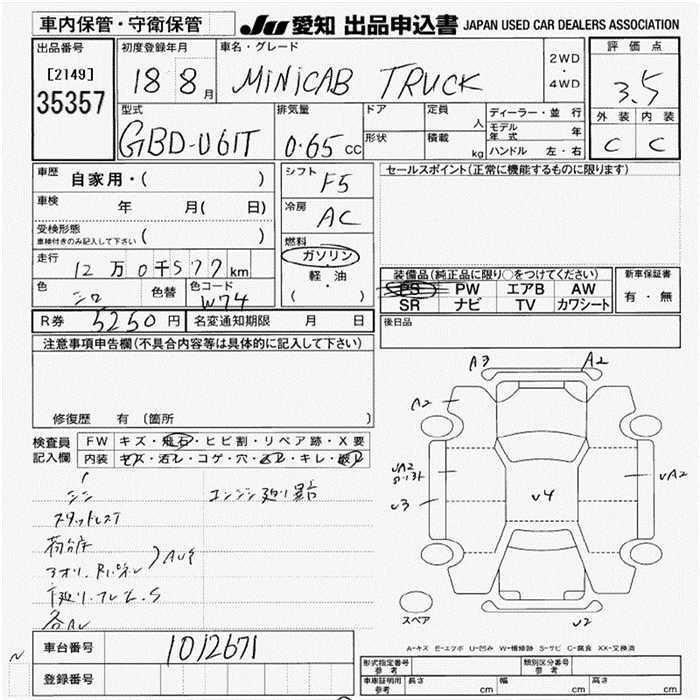 車内保管・守衛保管
JU 愛知 出品申込書 JAPAN USED CAR DEALERS ASSOCIATION
出品番号
[2149]
35357
初度登録年月
18 8 月
車名・グレード
MINICAB TRUCK
2WD
・
4WD
評価点
3.5
外装 内装
C C
型式
GBD-U61T
排気量
0.65 cc
ドア
形状
定員
人
積載
kg
ディーラー・並行
モデル年式 年
ハンドル 左・右
車歴 自家用・( )
車検 年 月( 日)
受検形態
車検付きのみ記入して下さい ( )
走行
12万0千577km
色
シロ
色替
色コード
W74
シフト
F5
冷房
AC
燃料
ガソリン
軽・油
( )
セールスポイント(正常に機能するものに限ります)
装備品(純正品に限り○をつけてください)
PS PW エアB AW
SR ナビ TV カワシート
新車保証書
有・無
R券 5250円
名変通知期限 月 日
後日品
注意事項申告欄(不具合内容等は具体的に記入して下さい)
修復歴 有 (箇所 )
検査員
記入欄
FW キズ・飛石・ヒビ割・リペア跡・X要
内装 キズ・汚レ・コゲ・穴・スレ・キレ・破レ
エンジン廻り異音
スタッドレス
荷台床
アオリ、Rパネル
下廻り、フレームS
各AU
A3 A2
A2
UA2
U3
U4
UA2
U2
スペア
A-キズ E-エクボ U-凹み W-補修跡 S-サビ C-腐食 XX-交換済
車台番号 1012671
登録番号
形式指定番号
参考
類別区分番号
参考
車庫証明用
参考
長さ cm
幅 cm
高さ cm